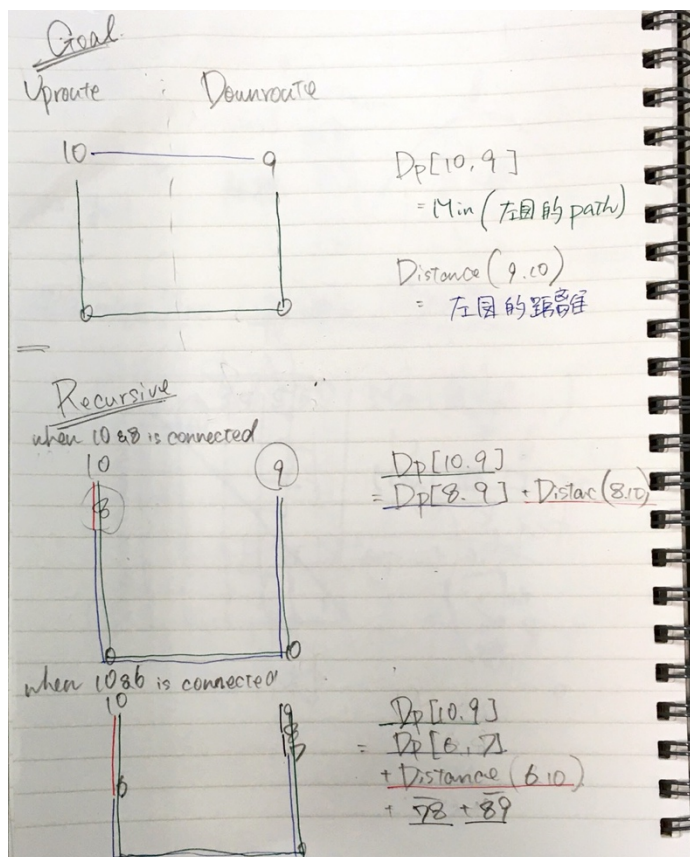 Goal.
Uproute : Downroute
10 9
Dp[10,9]
= Min(左図的path)
Distance(9.10)
= 左図的距離
0 0
Recursive
when 10&8 is connected
10 9
8
Dp[10.9]
= Dp[8.9] + Distanc(8.10)
0 0
when 10&6 is connected
10 9
8
7
6
Dp[10.9]
= Dp[6,7]
+ Distance(6.10)
+ 78 + 89